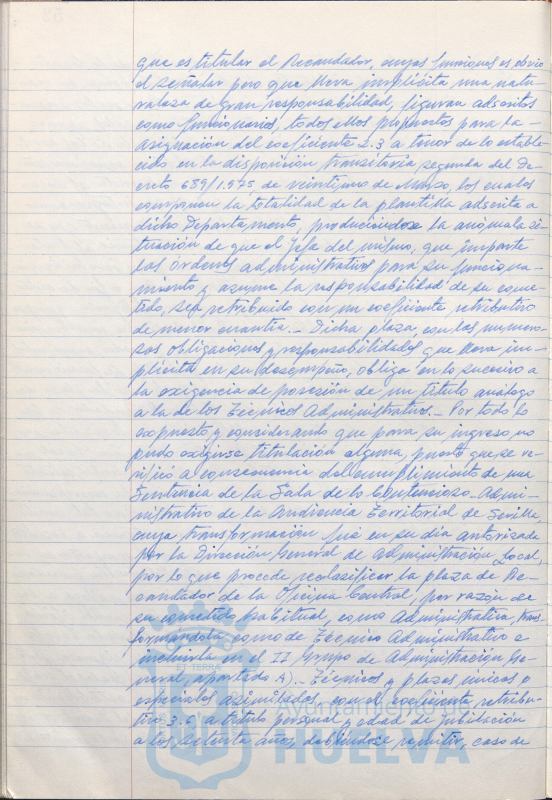 que es titular el Recaudador, cuyas funciones es obvio
el señalar pero que lleva implícita una natu-
raleza de gran responsabilidad, figuran adscritos
como funcionarios, todos ellos propuestos para la
asignación del coeficiente 2.3 a tenor de lo estable-
cido en la disposición transitoria segunda del De-
creto 689/1.975, de veintiuno de Marzo, los cuales
componen la totalidad de la plantilla adscrita a
dicho Departamento, produciéndose la anómala si-
tuación de que el Jefe del mismo, que imparte
las órdenes administrativas para su funciona-
miento y asume la responsabilidad de su come-
tido, sea retribuido con un coeficiente retributivo
de menor cuantía.- Dicha plaza, con las numero-
sas obligaciones y responsabilidades que lleva im-
plícita en su desempeño, obliga en lo sucesivo a
la exigencia de posesión de un título análogo
a la de los Técnicos Administrativos.- Por todo lo
expuesto y considerando que para su ingreso no
pudo exigirse titulación alguna, puesto que se ve-
rificó a consecuencia del cumplimiento de una
Sentencia de la Sala de lo Contencioso-Admi-
nistrativo de la Audiencia Territorial de Sevilla,
cuya transformación fué en su día autorizada
por la Dirección General de Administración Local,
por lo que procede reclasificar la plaza de Re-
caudador de la Oficina Central, por razón de
su cometido habitual, como Administrativa, trans-
formándola como de Técnico Administrativo e
incluirla en el II Grupo de Administración Ge-
neral, apartado A).- Técnicos y plazas únicas o
especiales asimilados, con el coeficiente retribu-
tivo 3.6 a título personal y edad de jubilación
a los setenta años, debiéndose remitir, caso de
EJ TERRÆ
Ayuntamiento de
HUELVA